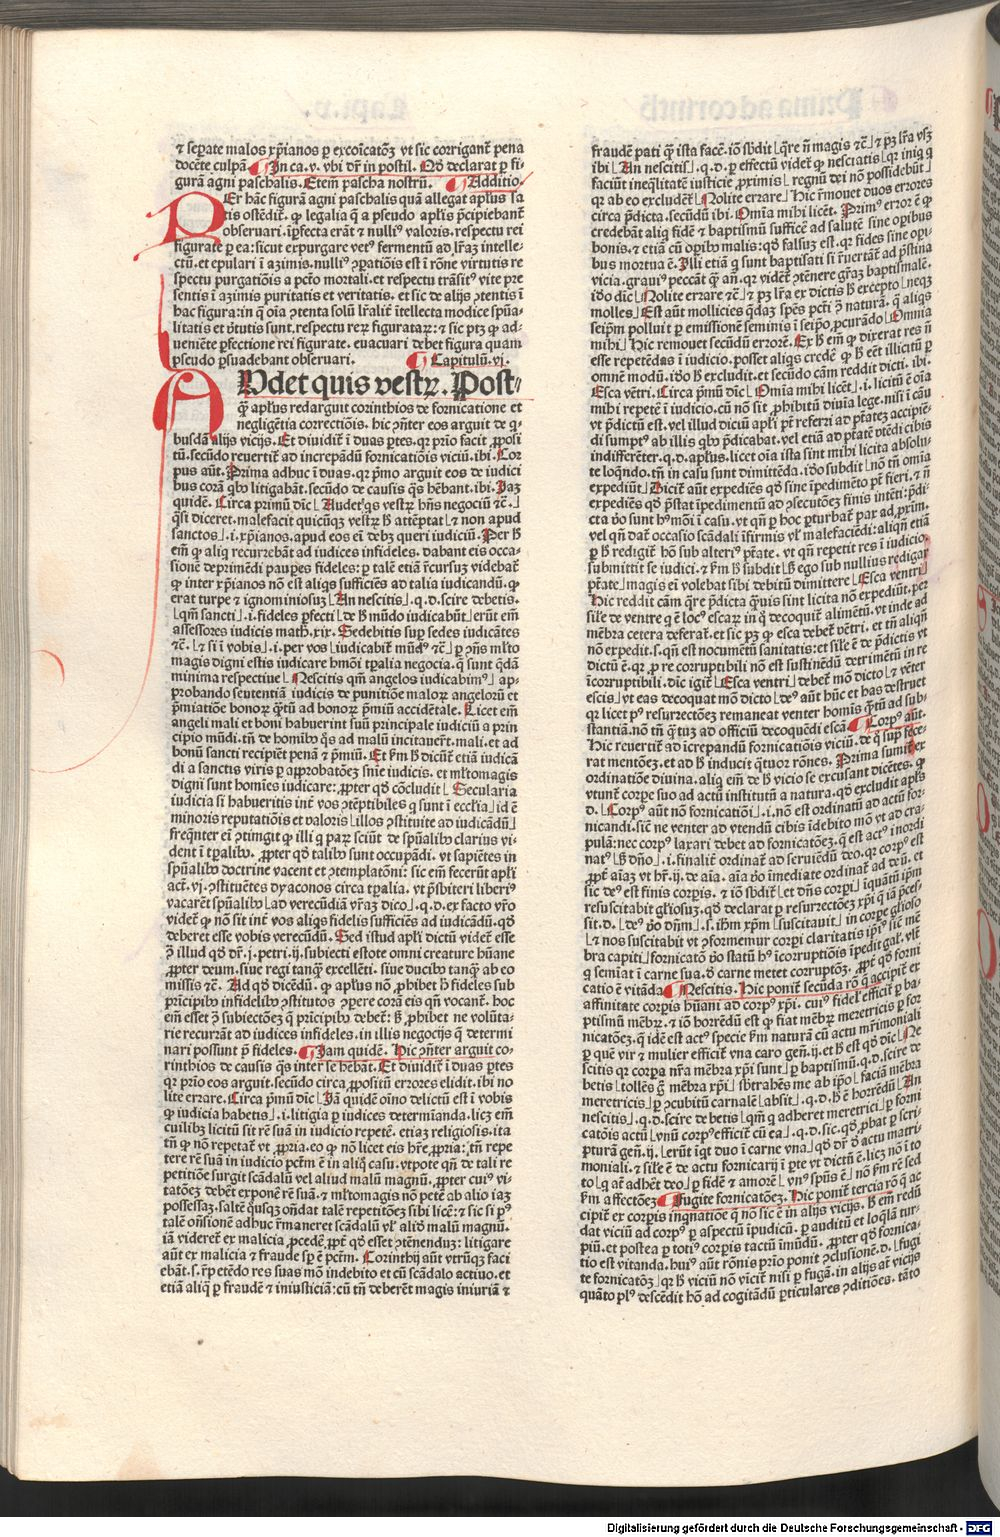 ⁊ seꝑate malos xp̄ianos ꝑ excōicatōꝫ vt sic corrigant᷑ pena
docēte culpā. In ca. v. vbi dr̄ in postil. Qd̓ declarat ꝑ fi-
gurā agni paschalis. Etem̄ pascha nostrū. Additio.
PEr hāc figurā agni paschalis quā allegat apl̓us sa
tis ostēdit᷑. ꝙ legalia q̄ a pseudo apl̓is p̄cipiebant᷑
obseruari. īꝑfecta erāt ⁊ nulliꝰ valoris. respectu rei
figurate ꝑ ea: sicut erpurgare vetꝰ fermentū ad lr̄aꝫ intelle-
ctū. et epulari ī azimis. nulliꝰ ꝯꝑatiōis est ī rōne virtutis re
spectu purgatiōis a pctō mortali. et respectu trāsitꝰ vite pre
sentis ī azimis puritatis et veritatis. et sic de alijs ꝯtentis ī
hac figura: in q̄ oīa ꝯtenta solū lr̄alit᷑ ītellecta modice spūa-
litatis et v̓tutis sunt. respectu reꝝ figurataꝝ: ⁊ sic ptꝫ ꝙ ad-
veniēte ꝑfectione rei figurate. euacuari debet figura quam
pseudo ꝑsuadebant obseruari. Capitulū. vj.
AVdet quis vestꝝ. Post-
q̄ apl̓us redarguit corinthios de fornicatione et
negligētia correctiōis. hic ꝯn̄ter eos arguit de q̓-
busdā alijs vicijs. Et diuidit᷑ ī duas ꝑtes. qꝛ prīo facit ꝓposi
tū. secūdo reuertit᷑ ad increpādū fornicatiōis viciū. ibi. Cor
pus aūt. Prima adhuc ī duas. qꝛ pͥmo arguit eos de iudici
bus corā qͥbꝰ litigabāt. secūdo de causis q̄s hēbant. ibi. Jaꝫ
quidē. Circa primū dīc Audet qͥs vestꝝ hn̄s negociū ⁊c̄.
q̄si diceret. malefacit quicūqꝫ vestꝝ h̓ attēptat ⁊ non apud
sanctos .i. xp̄ianos. apud eos em̄ debꝫ queri iudiciū. Per h̓
em̄ ꝙ aliq̄ recurrebāt ad iudices infideles. dabant eis occa-
sionē deprimēdi pauꝑes fideles: ꝑ talē etiā r̄cursuꝫ videbat᷑
ꝙ inter xp̄ianos nō est aliqͥs sufficiēs ad talia iudicandū. ꝙ
erat turpe ⁊ ignominiosuꝫ An nescitis .q.d. scire debetis.
qm̄ sancti .i. fideles ꝑfecti de h̓ mūdo iudicabūt erūt em̄
assessores iudicis math. xix. Sedebitis suꝑ sedes iudicātes
⁊c̄. ⁊ si ī vobis .i. per vos iudicabit᷑ mūdꝰ ⁊c̄. ꝑ ꝯn̄s ml̓to
magis digni estis iudicare hmōi tp̄alia negocia. q̄ sunt q̄dā
minima respectiue Nescitis qm̄ angelos iudicabimꝰ ap-
probando seutentiā iudicis de punitiōe maloꝝ angeloꝝ et
p̄miatiōe bonoꝝ q̄tū ad bonoꝝ p̄miū accidētale. Licet em̄
angeli mali et boni habuerint suū principale iudiciū a prin
cipio mūdi. tn̄ de homībꝰ q̄s ad malū incitauert̄. mali. et ad
bonū sancti recipiēt penā ⁊ p̄miū. Et km̄ h̓ dicūt᷑ etiā iudicā
di a sanctis viris ꝑ approbatōeꝫ snīe iudicis. et ml̓tomagis
digni sunt homīes iudicare: ꝓpter qd̓ cōcludit Secularia
iudicia si habueritis int᷑ vos ꝯtēptibiles q̄ sunt ī eccl̓ia id ē
minoris reputatiōis et valoris illos ꝯstituite ad iudicādū
freqn̄ter em̄ ꝯtingit ꝙ illi q̄ paꝝ sciūt de spūalibꝰ clarius vi-
dent ī tp̄alibꝰ. ꝓpter qd̓ talibꝰ sunt occupādi. vt sapiētes in
spūalibꝰ doctrine vacent et ꝯtemplatōni: sic em̄ fecerūt apl̓i
act. vj. ꝯstituētes dyaconos circa tp̄alia. vt p̄sbiteri liberiꝰ
vacarēt spūalibꝰ ad verecūdiā vr̄aꝫ dico .q.d. ex facto vr̄o
videt᷑ ꝙ nō sit int᷑ vos aliqͥs fidelis sufficiēs ad iudicādū. qd̓
deberet esse vobis verecūdū. Sed istud apl̓i dictū videt᷑ esse
ꝯ̄ illud qd̓ dr̄ .j. petri .ij. subiecti estote omni creature hūane
ꝓpter deum. siue regi tanqꝫ excellēti. siue ducibꝰ tanqꝫ ab eo
missis ⁊c̄. Ad qd̓ dicēdū. ꝙ apl̓us nō ꝓhibet h̓ fideles sub
prīcipibꝰ infidelibꝰ ꝯstitutos ꝯꝑere corā eis qn̄ vocant᷑. hoc
em̄ esset ꝯ̄ subiectōeꝫ q̄ prīcipibꝰ debet᷑: ß ꝓhibet ne volūta-
rie recurrāt ad iudices infideles. in illis negocijs q̄ determi
nari possunt ꝑ fideles. Jam quidē. Hic ꝯn̄ter arguit co-
rinthios de causis q̄s inter se hēbāt. Et diuidit᷑ ī duas ꝑtes
qꝛ prīo eos arguit. secūdo circa ꝓpositū errores elidit. ibi no
lite errare. Circa pͥmū dīc Jā quidē oīno delictū est ī vobis
ꝙ iudicia habetis .i. litigia ꝑ iudices determīanda. licꝫ em̄
cuilibꝫ licitū sit rē suā in iudicio repetē. etiaꝫ religiosis. ita
tn̄ ꝙ nō repetāt vt ꝓpria. eo ꝙ nō licet eis hr̄e ꝓpria: tn̄ repe
tere rē suā in iudicio pctm̄ ē in aliq̄ casu. vtpote qn̄ de tali re
petitiōe surgit scādalū vel aliud malū magnū. ꝓpter cuiꝰ vi-
tatōeꝫ debēt exponē rē suā. ⁊ ml̓tomagis nō petē ab alio iaꝫ
possessaꝫ. saltē qͥusqꝫ on̄dat talē repetitōeꝫ sibi licē: ⁊ sic si pꝰ
talē on̄sionē adhuc r̄maneret scādalū vl̓ aliud malū magnū.
iā videret᷑ ex malicia ꝓcedē. ꝓpt᷑ qd̓ esset ꝯtēnenduꝫ: litigare
aūt ex malicia ⁊ fraude sp̄ ē pctm̄. Corinthij aūt vtrūqꝫ faci
ebāt. s. r̄petēdo res suas mō indebito et cū scādalo actiuo. et
etiā aliq̄ ꝑ fraudē ⁊ iniusticiā: cū tn̄ deberēt magis iniuriā ⁊
fraudē pati q̄ ista facē. iō sbdit qr̄e nō magis ⁊c̄ ⁊ pꝫ lr̄a vsqꝫ
ibi An nescitis .q.d. ꝑ effectū videt᷑ ꝙ nesciatis qꝛ iniqͥ q̄
faciūt ineqͥlitatē iusticie ꝓximis regnū dei nō possidebūt
qꝛ ab eo excludent᷑ Nolite errare Hic r̄mouet duos errores
circa p̄dicta. secūdū ibi. Omīa mihi licēt. Primꝰ error ē ꝙ
credebāt aliq̄ fidē ⁊ baptismū sufficē ad salutē sine oꝑibus
bonis. ⁊ etiā cū oꝑibꝰ malis: qd̓ falsuꝫ est. qꝛ fides sine oꝑi-
bus mortua ē. Illi etiā q̄ sunt baptisati si r̄uertāt᷑ ad p̄stina
vicia. grauiꝰ peccāt q̄ an̄. qꝛ vident᷑ ꝯtēnere gr̄aꝫ baptismalē.
iō dīc Nolite errare ⁊c̄ ⁊ pꝫ lr̄a ex dictis h̓ excepto neqꝫ
molles Est aūt mollicies q̄daꝫ spēs pctī ꝯ̄ naturā. q̄ aliqͥs
seip̄m polluit ꝑ emissionē seminis ī seip̄o ꝓcurādo Omnia
mihi Hic remouet secūdū errorē. Ex h̓ em̄ ꝙ dixerat res nō
esse repetēdas ī iudicio. posset aliqͥs credē ꝙ h̓ eēt illicitū ꝑ
omnē modū. iō h̓ excludit. et secūdo cām reddit dicti. ibi.
Esca vētri. Circa pͥmū dīc Omīa mihi licēt .i. licitū ē oīa
mihi repetē ī iudicio. cū nō sit ꝓhibitū diuīa lege. nisi ī cāu
vt p̄dictū est. vel illud diciū apl̓i pt̄ referri ad ptātēꝫ accipiē-
di sumptꝰ ab illis qͥbꝰ p̄dicabat. vel etiā ad ptātē vtēdi cibis
indifferēter. q.d. apl̓us. licet oīa ista sint mihi licita absolu-
te loq̄ndo. tn̄ in casu sunt dimittēda. iō subdit nō tn̄ omīa
expediūt Dicit᷑ aūt expediēs qd̓ sine īpedimēto pt̄ fieri. ⁊ nō
expediēs qd̓ p̄stat īpedimentū ad ꝯsecutōeꝫ finis intēti: p̄di-
cta v̓o sunt hꝰmōi ī casu. vt qn̄ ꝑ hoc ꝑturbat᷑ pax ad ꝓxim.
vel qn̄ dat᷑ occasio scādali īfirmis vl̓ malefaciēdi: aliqn̄ etiā
ꝑ h̓ redigit᷑ hō sub alteriꝰ ptāte. vt qn̄ repetit res ī iudicio
submittit se iudici. ⁊ km̄ h̓ subdit ß ego sub nullius redigar
ptāte magis em̄ volebat sibi debitū dimittere Esca ventri
Hic reddit cām q̄re p̄dicta qͣuis sint licita nō expediūt. per
sil̓e de ventre q̄ ē locꝰ escaꝝ in qͦ decoquit᷑ alimētū. vt inde ad
mēbra cetera deferat᷑. et sic pꝫ ꝙ esca debet᷑ vētri. et tn̄ aliqn̄
nō expedit. s. qn̄ est nocumētū sanitatis: et sil̓e ē de p̄dictis vt
dictū ē. qꝛ ꝓ re corruptibili nō est sustinēdū detrimētū in re
īcorruptibili. dīc igit᷑ Esca ventri debet᷑ mō dicto ⁊ vēter
escis vt eas decoquat mō dicto deꝰ aūt hūc et has destruet
qꝛ licet pꝰ resurrectōeꝫ remaneat venter homīs q̄tū ad sub-
stantiā. nō tn̄ q̄tuꝫ ad officiū decoquēdi escā Corpꝰ aūt.
Hic reuertit᷑ ad īcrepandū fornicatiōis viciū. de qͦ suꝑ fece-
rat mentōeꝫ. et ad h̓ inducit qͣtuor rōnes. Prima sumit᷑ ex
ordinatiōe diuina. aliq̄ em̄ de h̓ vicio se excusant dicētes. ꝙ
vtunt᷑ corpe suo ad actū institutū a natura. qd̓ excludit apl̓s
d. Corpꝰ aūt nō fornicatiōi .i. nō est ordinatū ad actū for-
nicandi. sicut̄ ne venter ad vtendū cibis īdebito mō vt ad cra-
pulā: nec corpꝰ laxari debet ad fornicatōeꝫ. q̄ est actꝰ inordi
natꝰ ß dn̄o .i. finalit᷑ ordinat᷑ ad seruiēdū deo. qꝛ corpꝰ est
ꝓpt᷑ aīaꝫ vt hr̄ .ij. de aīa. aīa v̓o īmediate ordinat᷑ ad deū. et
sic deꝰ est finis corꝑis. ⁊ iō sbdit et dn̄s corpi īquātū ip̄m
resuscitabit gl̓iosuꝫ. qd̓ declarat ꝑ resurrectōeꝫ xp̄i q̄ iā p̄ces-
sit .d. deꝰ v̓o dn̄m .s. ihm̄ xp̄m suscitauit in corꝑe gl̓ioso
⁊ nos suscitabit vt ꝯformemur corpi claritatis ip̄iꝰ sicut̄ mē
bra capiti: fornicatō v̓o statū hꝰ īcorruptiōis īpedit. gal. vlt᷑.
q̄ semīat ī carne sua. d̓ carne metet corruptōꝫ. ꝓpt᷑ qd̓ forni
catio ē vitāda Nescitis. Hic ponit᷑ secūda rō q̄ accipit᷑ ex
affinitate corꝑis hūani ad corpꝰ xp̄i. cuiꝰ fideles efficit᷑ ꝑ ba-
ptismū mēbꝝ. ⁊ iō horrēdū est ꝙ fiat mēbꝝ meretricis ꝑ for
nicatōeꝫ. q̄ idē est actꝰ specie km̄ naturā cū actu mr̄imoniali
ꝑ quē vir ⁊ mulier efficit᷑ vna caro gen̄. ij. et h̓ est qd̓ dīc Ne
scitis qꝛ corpa nr̄a mēbra xp̄i sunt ꝑ baptismū. q.d. scire de
betis tollēs gͦ mēbra xp̄i sbtrahēs me ab ip̄o faciā mēbra
meretricis ꝑ ꝯcubitū carnalē absit .q.d. h̓ ē horrēdū An
nescitis .q.d. scire debetis qm̄ q̄ adheret meretrici ꝑ forni
catōis actū vnū corpꝰ efficit᷑ cū ea .q.d. sic. qd̓ ꝓbat ꝑ scri-
pturā gen̄. ij. erūt īqͥt duo ī carne vna qd̓ dr̄ d̓ actu matri
moniali. ⁊ sil̓e ē de actu fornicarij ī ꝑte vt dictū ē. licꝫ nō ī to
to qͥ aūt adhēt᷑ deo ꝑ fidē ⁊ amorē vnꝰ spūs ē nō km̄ rē sed
km̄ affectōeꝫ Fugite fornicatōeꝫ. Hic ponit᷑ tercia rō q̄ ac
cipit᷑ ex corꝑis inqͥnatiōe q̄ nō sic ē in alijs vicijs. h̓ em̄ redū
dat viciū ad corpꝰ ꝑ aspectū īpudicū. ꝑ auditū et loq̄lā tur-
piū. et postea ꝑ totiꝰ corꝑis tactū īmūdū. ꝓpter qd̓ fornica-
tio est vitanda. huiꝰ aūt rōnis prīo ponit ꝯclusionē .d. Fugi
te fornicatōꝫ qꝛ h̓ viciū nō vīcit᷑ nisi ꝑ fugā. in alijs at̄ vicijs
quāto plꝰ descēdit hō ad cogitādū ꝑticulares ꝯditiōes. tāto
Digitalisierung gefördert durch die Deutsche Forschungsgemeinschaft - DFG